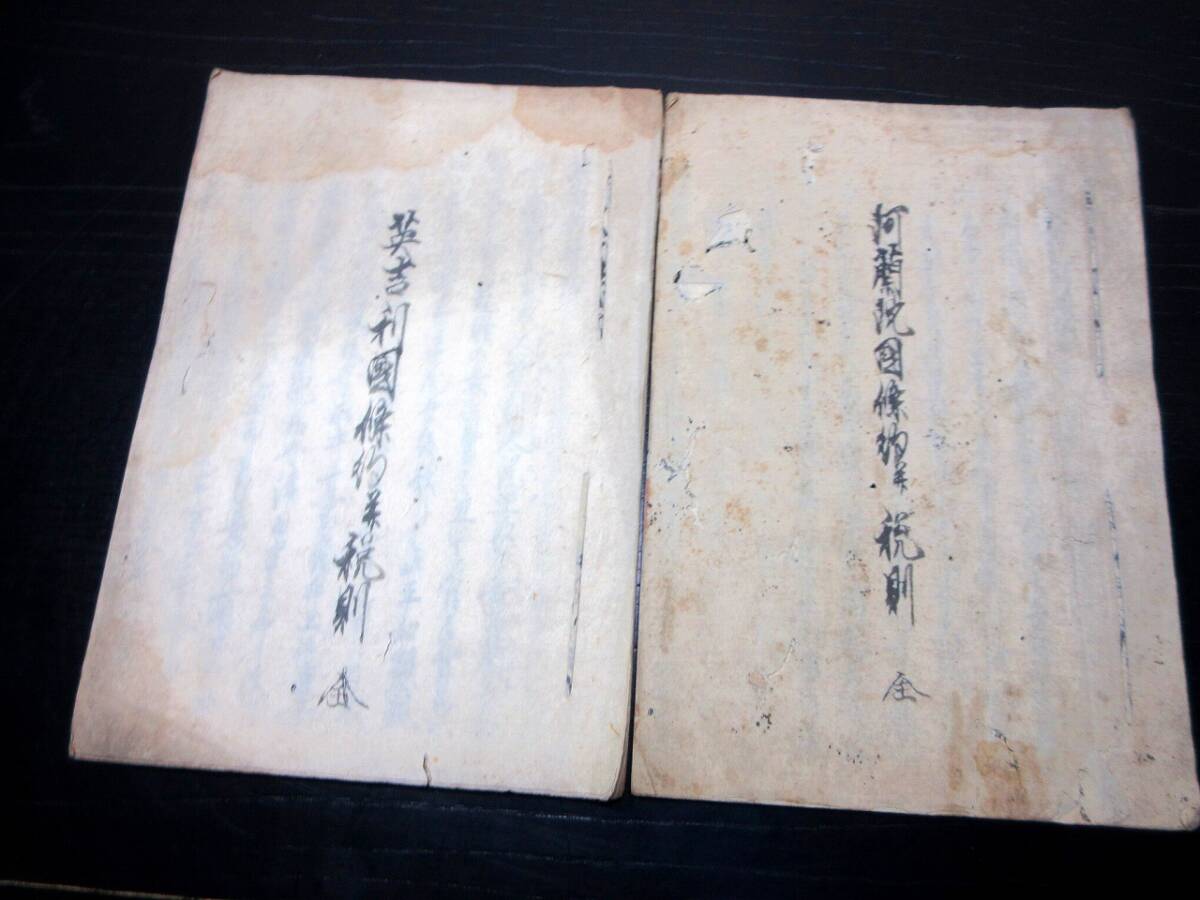 阿蘭陀國條約并税則 全
英吉利國條約并税則 全